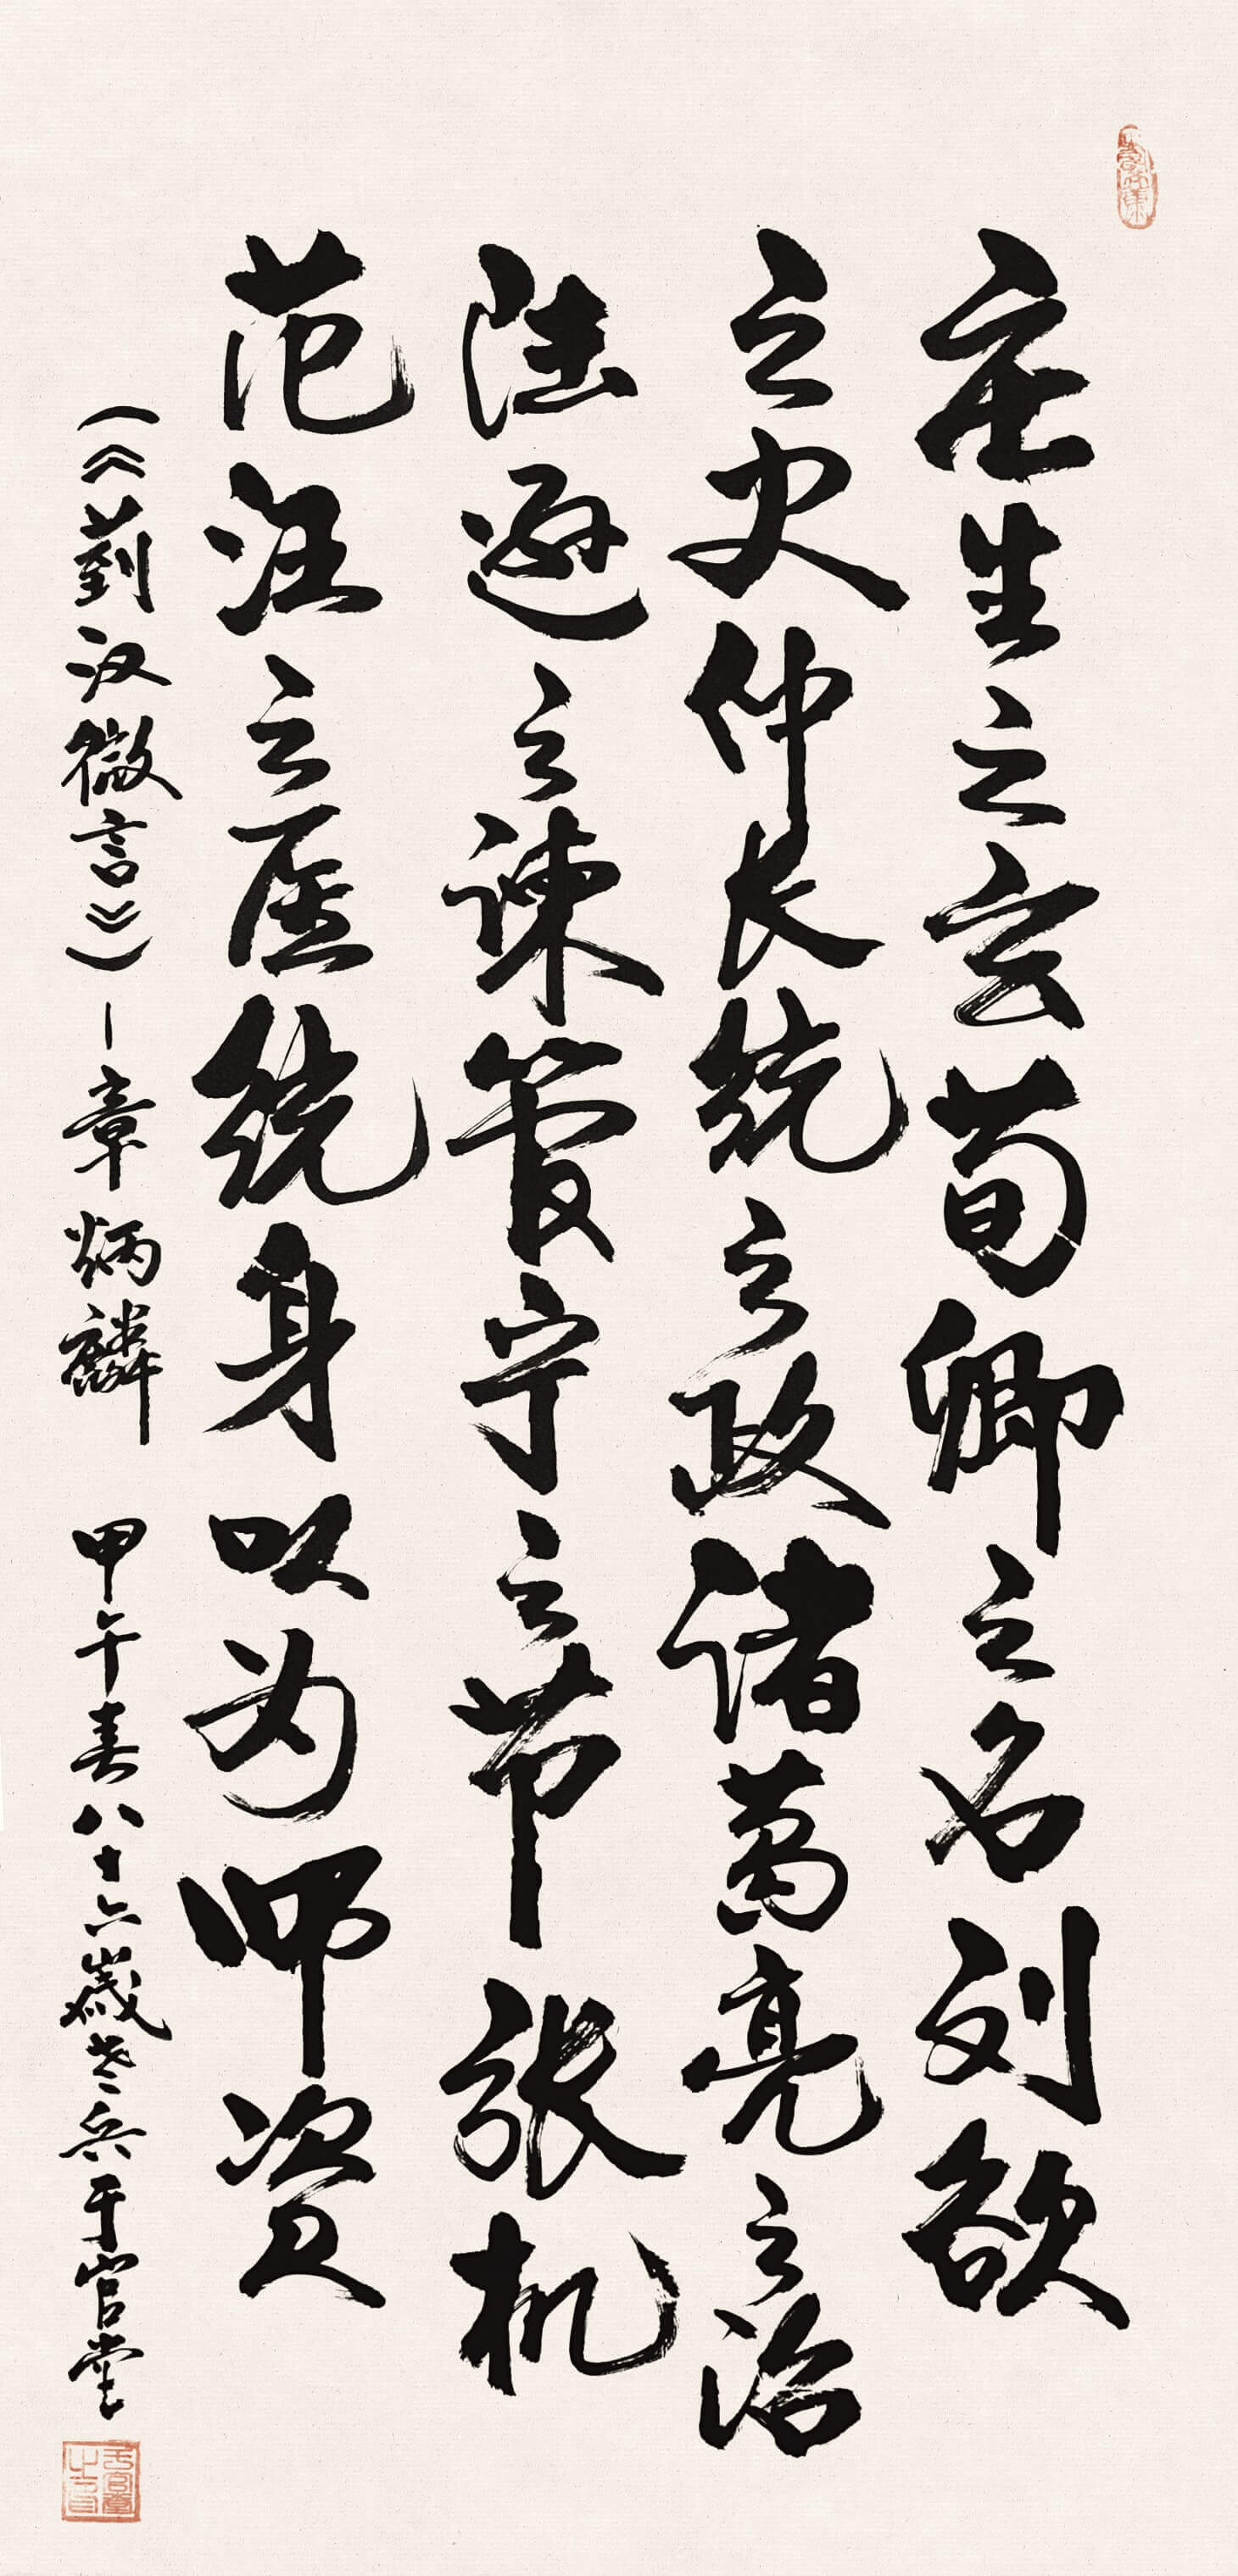 庄生之玄荀卿之名刘歆
之史仲长统之政诸葛亮之治
陆逊之谏管宁之节张机
范汪之医统身以为师资
（《菿汉微言》）-章炳麟 甲午春八十六岁老兵于官堂